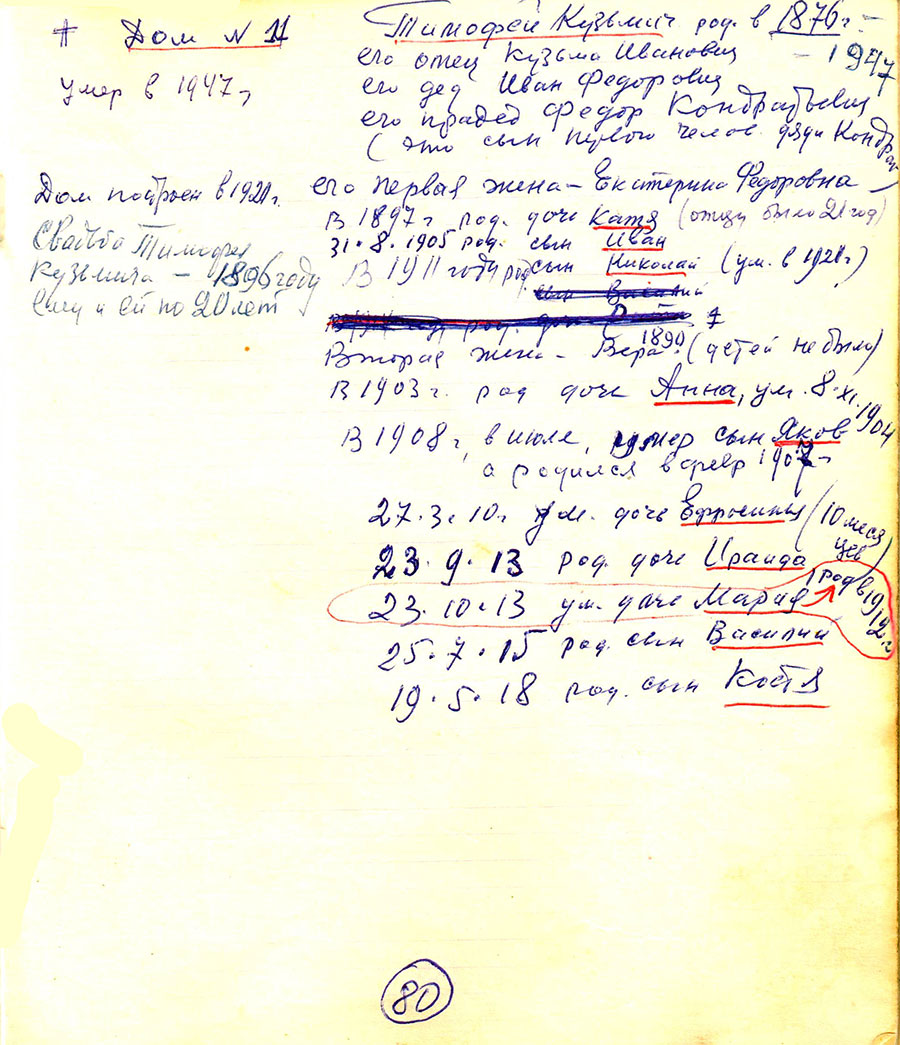 + Дом N 11
умер в 1947 г
Тимофей Кузьмич род. в 1876 г –
– 1947
его отец Кузьма Иванович
его дед Иван Федорович
его прадед Федор Кондратьевич
( это сын первого челов. дяди Кондрат
Дом построен в 1921 г.
Свадьба Тимофея
Кузьмича – 1896 году
Ему и ей по 20 лет
его первая жена – Екатерина Федоровна
В 1897 г род. дочь Катя (отцу было 21 год)
31.8.1905 род. сын Иван
В 1911 году род. сын Николай (ум. в 1921 г)
сын Василий
Вторая жена – Вера 1890 (детей не было)
В 1903 г. род дочь Анна, ум. 8.XI.1904
В 1908 г, в июле, умер сын Яков
а родился в февр 1907 г
27.3.10 г ум. дочь Ефросинья (10 месяцев)
23.9.13 род. дочь Ираида
23.10.13 ум. дочь Мария (род в 1912 г.
25.7.15 род. сын Василий
19.5.18 род. сын Костя
80